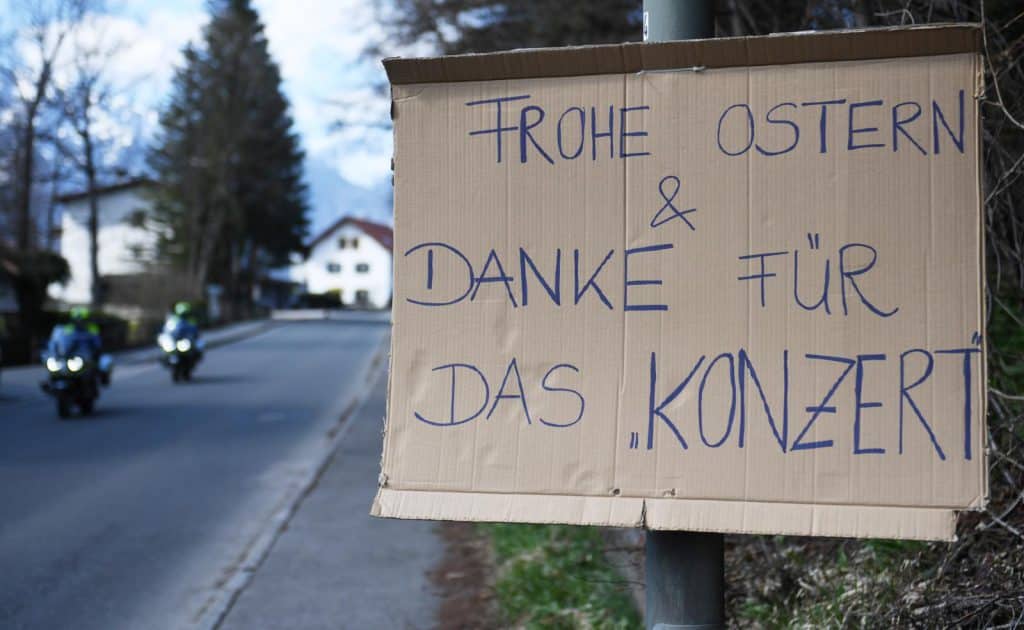 FROHE OSTERN
&
DANKE FÜR
DAS „KONZERT"